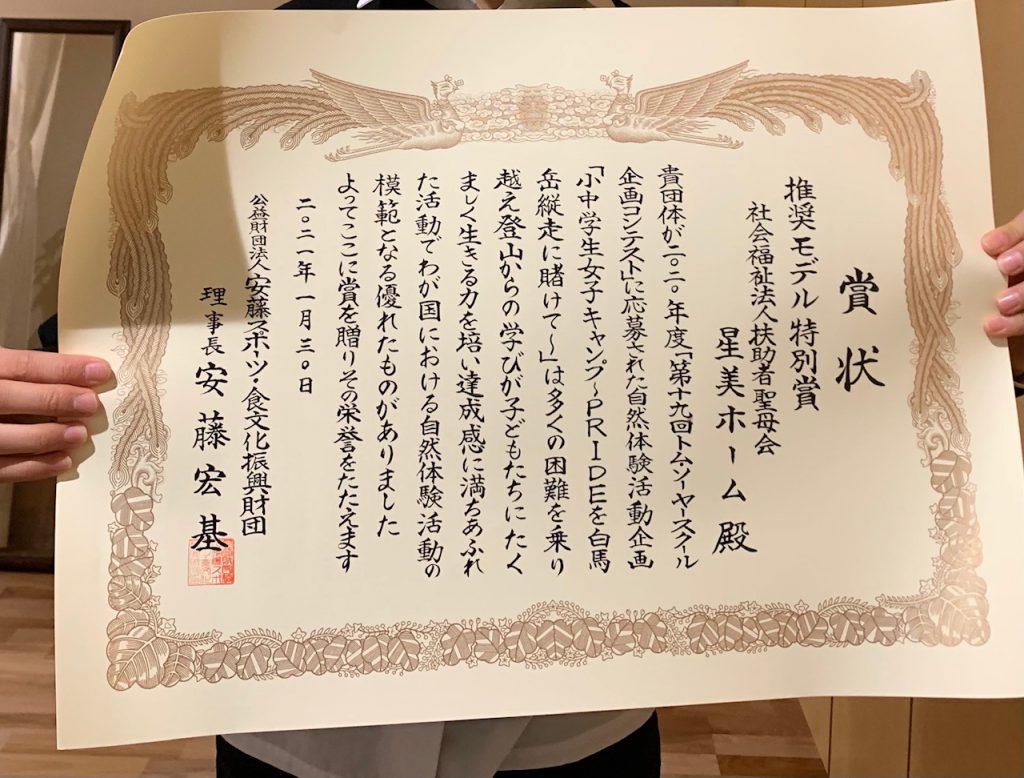 賞状
推奨モデル特別賞
社会福祉法人扶助者聖母会
星美ホーム殿
貴団体が二〇二〇年度「第十九回トム・ソーヤースクール
企画コンテスト」に応募された自然体験活動企画
「小中学生女子キャンプ～PRIDEを白馬
岳縦走に賭けて～」は多くの困難を乗り
越え登山からの学びが子どもたちにたく
ましく生きる力を培い達成感に満ちあふれ
た活動でわが国における自然体験活動の
模範となる優れたものがありました
よってここに賞を贈りその栄誉をたたえます
二〇二一年一月三〇日
公益財団法人安藤スポーツ・食文化振興財団
理事長安藤宏基